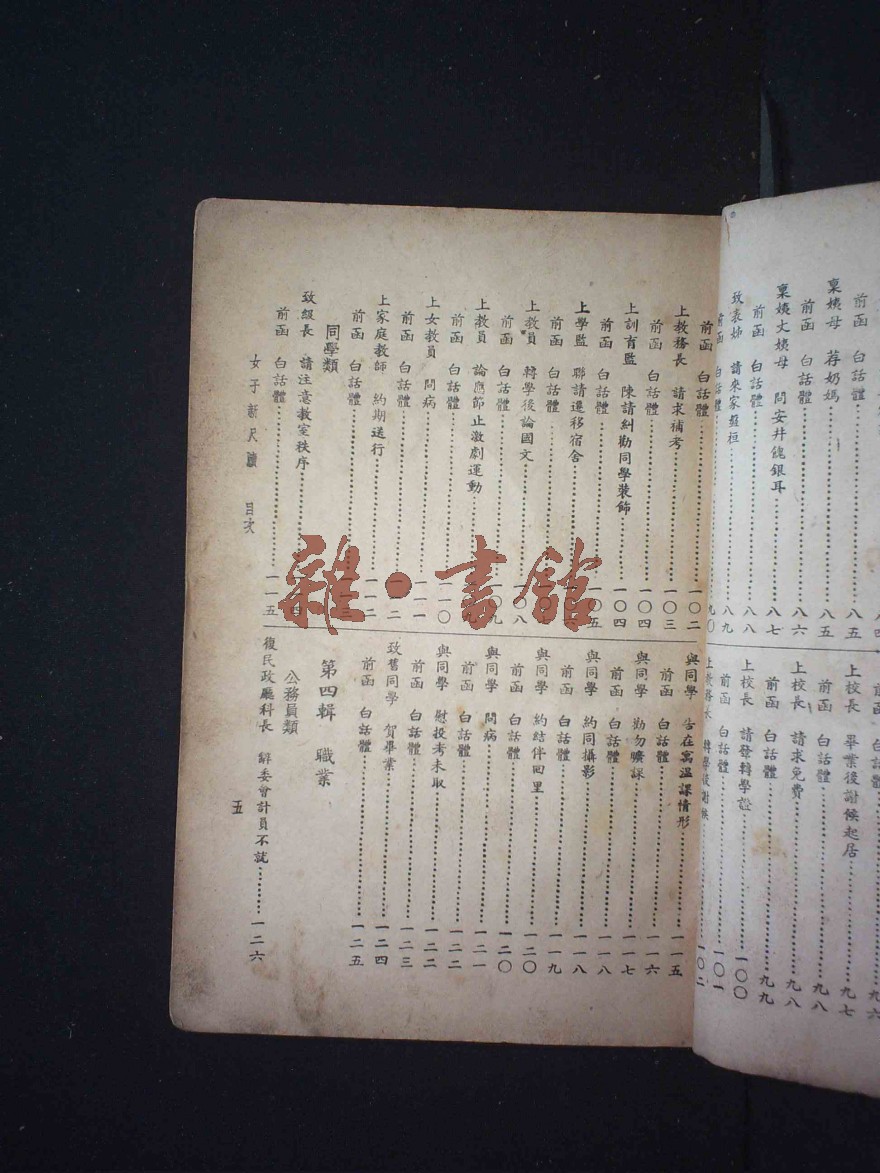 八四
前函 白話體……八五
稟姨母 荐奶媽……八五
前函 白話體……八六
稟姨丈姨母 問安并餽銀耳……八七
前函 白話體……八八
致表姊 請來家盤桓……八九
前函 白話體……九〇
前函 白話體……九六
上校長 畢業後謝候起居……九七
前函 白話體……九八
上校長 請求免費……九八
前函 白話體……九九
上校長 請發轉學證……一〇〇
前函 白話體……一〇一
上教務長 轉學後謝候……一〇二
前函 白話體……一〇二
上教務長 請求補考……一〇三
前函 白話體……一〇四
上訓育監 陳請糾勸同學裝飾……一〇四
前函 白話體……一〇五
上學監 聯請遷移宿舍……
前函 白話體……
上教員 轉學後論國文……一〇八
前函 白話體……一〇九
上教員 論應節止激劇運動……
前函 白話體……一一〇
上女教員 問病……一一一
前函 白話體……一一二
上家庭教師 約期送行……一一二
前函 白話體……一一三
同學類
致級長 請注意教室秩序……一一四
前函 白話體……一一五
與同學 告在寓溫課情形……一一五
前函 白話體……一一六
與同學 勸勿曠課……一一七
前函 白話體……一一八
與同學 約同攝影……一一八
前函 白話體……一一九
與同學 約結伴回里……一二〇
前函 白話體……一二〇
與同學 問病……一二一
前函 白話體……一二二
與同學 慰投考未取……一二二
前函 白話體……一二三
致舊同學 賀畢業……一二四
前函 白話體……一二五
第四輯 職業
公務員類
復民政廳科長 辭委會計員不就……一二六
女子新尺牘 目次
五
雜·書館